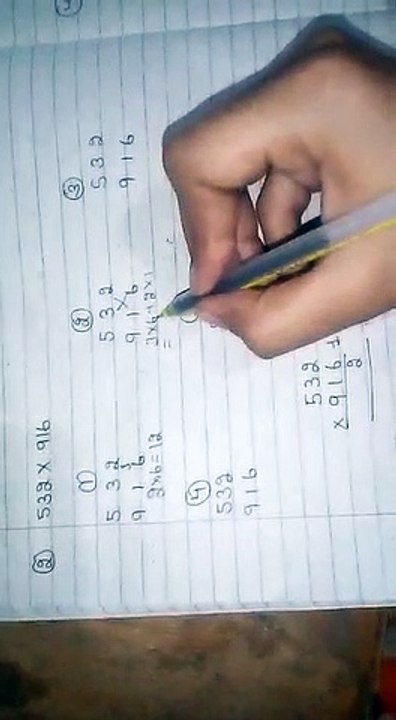 ② 532 × 916
①
5 3 2
9 1 6
2×6=12
②
5 3 2
9 1 6
3×6+2×1
=
③
5 3 2
9 1 6
④
532
916
532
× 916
2